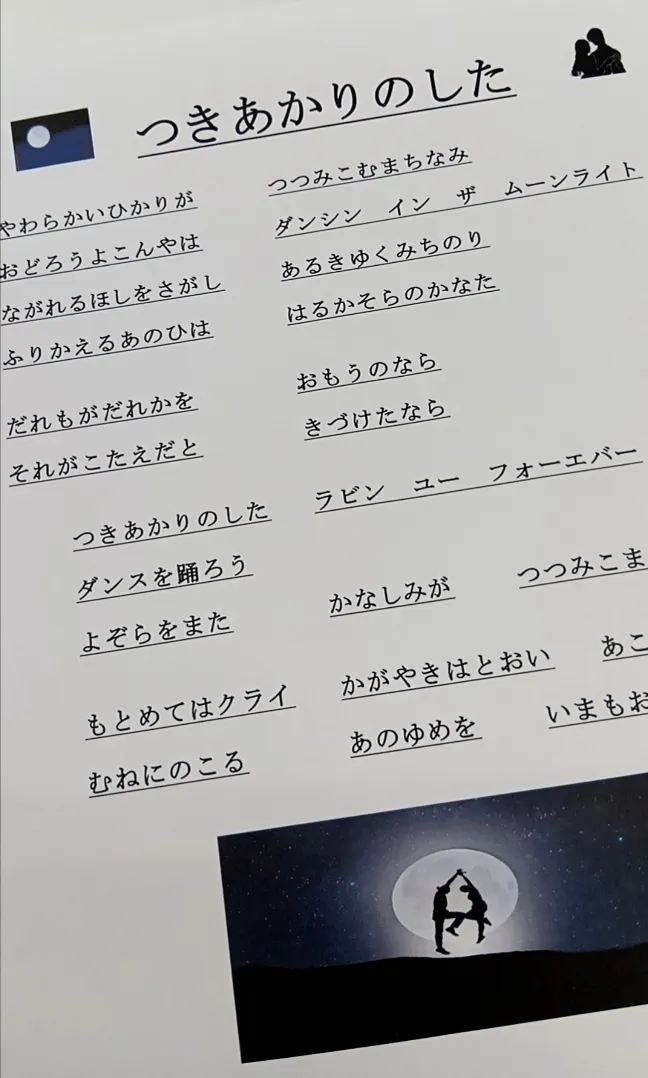 つきあかりのした
やわらかいひかりが　つつみこむまちなみ
おどろうよこんやは　ダンシン　イン　ザ　ムーンライト
ながれるほしをさがし　あるきゆくみちのり
ふりかえるあのひは　はるかそらのかなた
だれもがだれかを　おもうのなら
それがこたえだと　きづけたなら
つきあかりのした　ラビン　ユー　フォーエバー
ダンスを踊ろう
よぞらをまた　かなしみが　つつみこま
もとめてはクライ　かがやきはとおい　あこ
むねにのこる　あのゆめを　いまもお